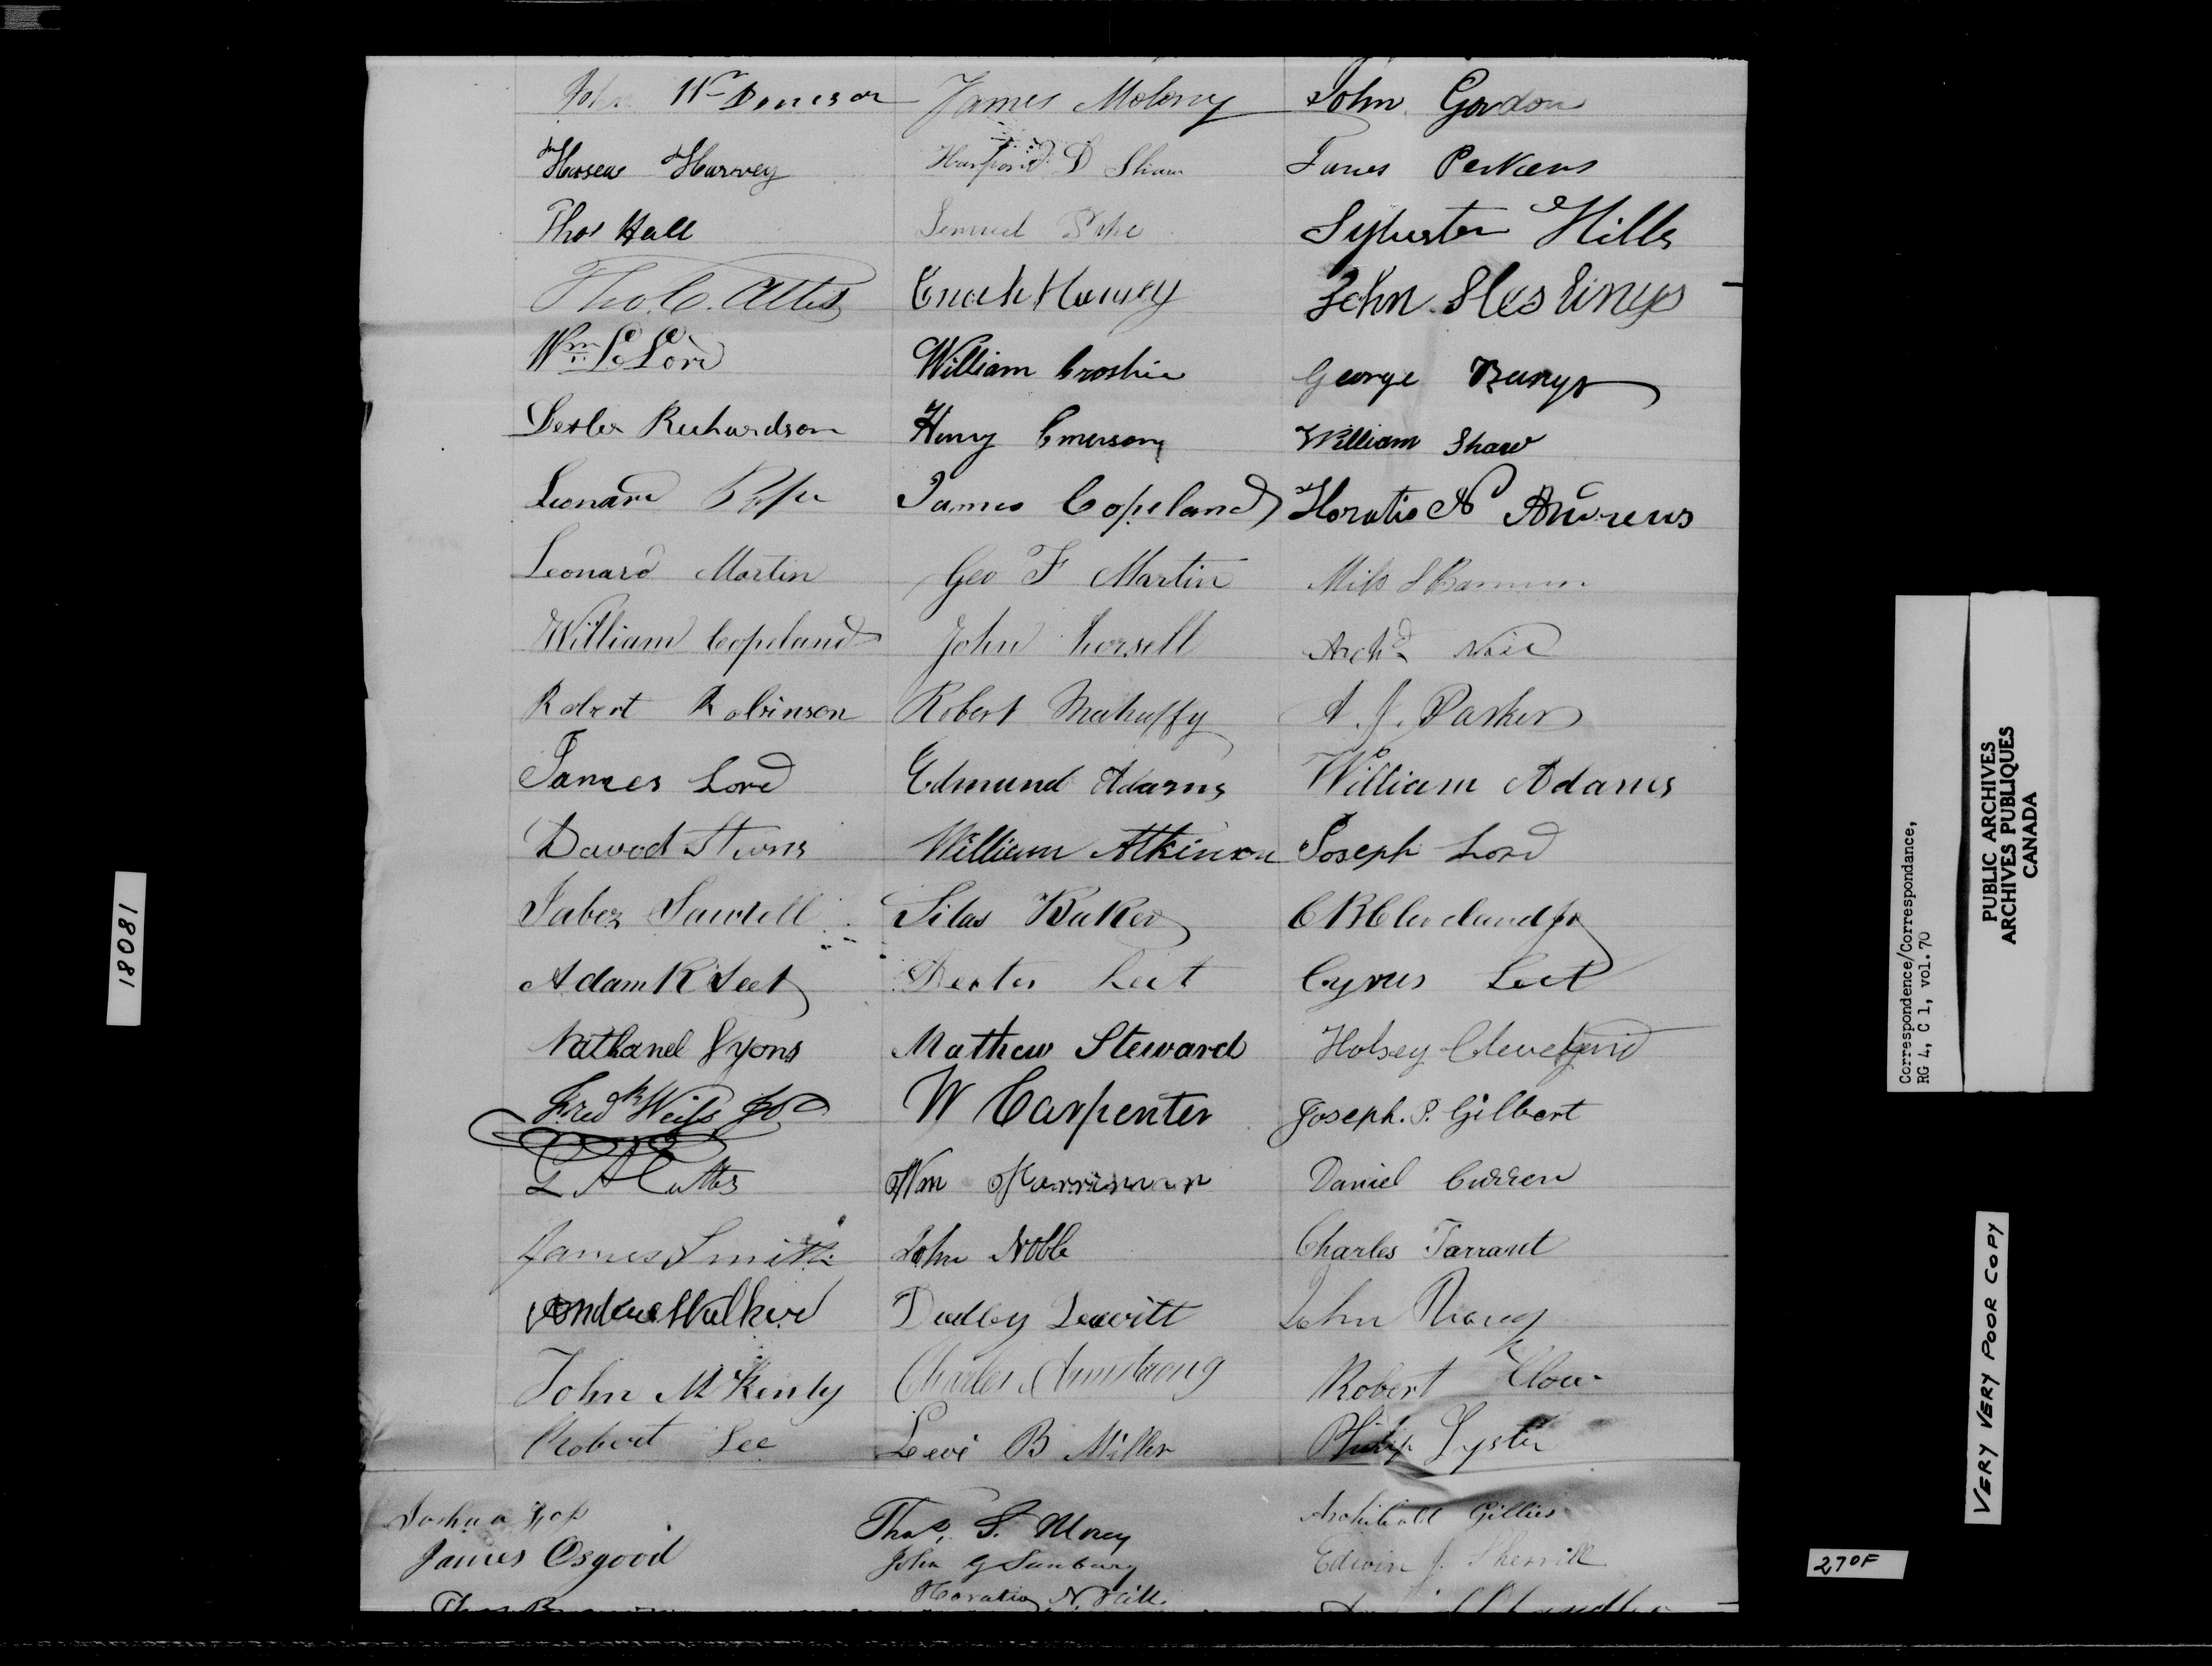 John Wm Denison James Molony John Gordon
Hosea Harvey D Shaw James Perkins
Thos Hall Lemuel Pope Sylvester Hills
Tho. C. Allis Enoch Harvey John Hestings
Wm Lord William Crosbie George Bangs
Lester Richardson Henry Emerson William Shaw
Leonard Pope James Copeland Horatio N Andrews
Leonard Martin Geo F Martin Barnum
William Copeland John Horsell Archd
Robert Robinson Robert Mahaffy A. J. Parker
James Lord Edmund Adams William Adams
David Stevens William Atkinson Joseph Lord
Jabez Sawtell Silas Baker C B Cleveland Jr
Adam K Leet Dexter Leet Cyrus Leet
Nathanel Lyons Mathew Steward Holsey Cleveland
Fredk Weiss W Carpenter Joseph. S. Gilbert
G A Cutter Wm Harriman Daniel Curren
James Smith John Noble Charles Tarrant
Andrew Walker Dudley Leavitt John
John McKenly Charles Armstrong Robert Clow
Robert Lee Levi B Miller Philip Lyster
Joshua Thos. S. Morey Archibald Gillies
James Osgood John G Sanbury Edwin J. Sherrill
Thos Horatio N. Hill Chandler
18081
Correspondence/Correspondance,
RG 4, C 1, vol. 70
PUBLIC ARCHIVES
ARCHIVES PUBLIQUES
CANADA
VERY VERY POOR COPY
270F